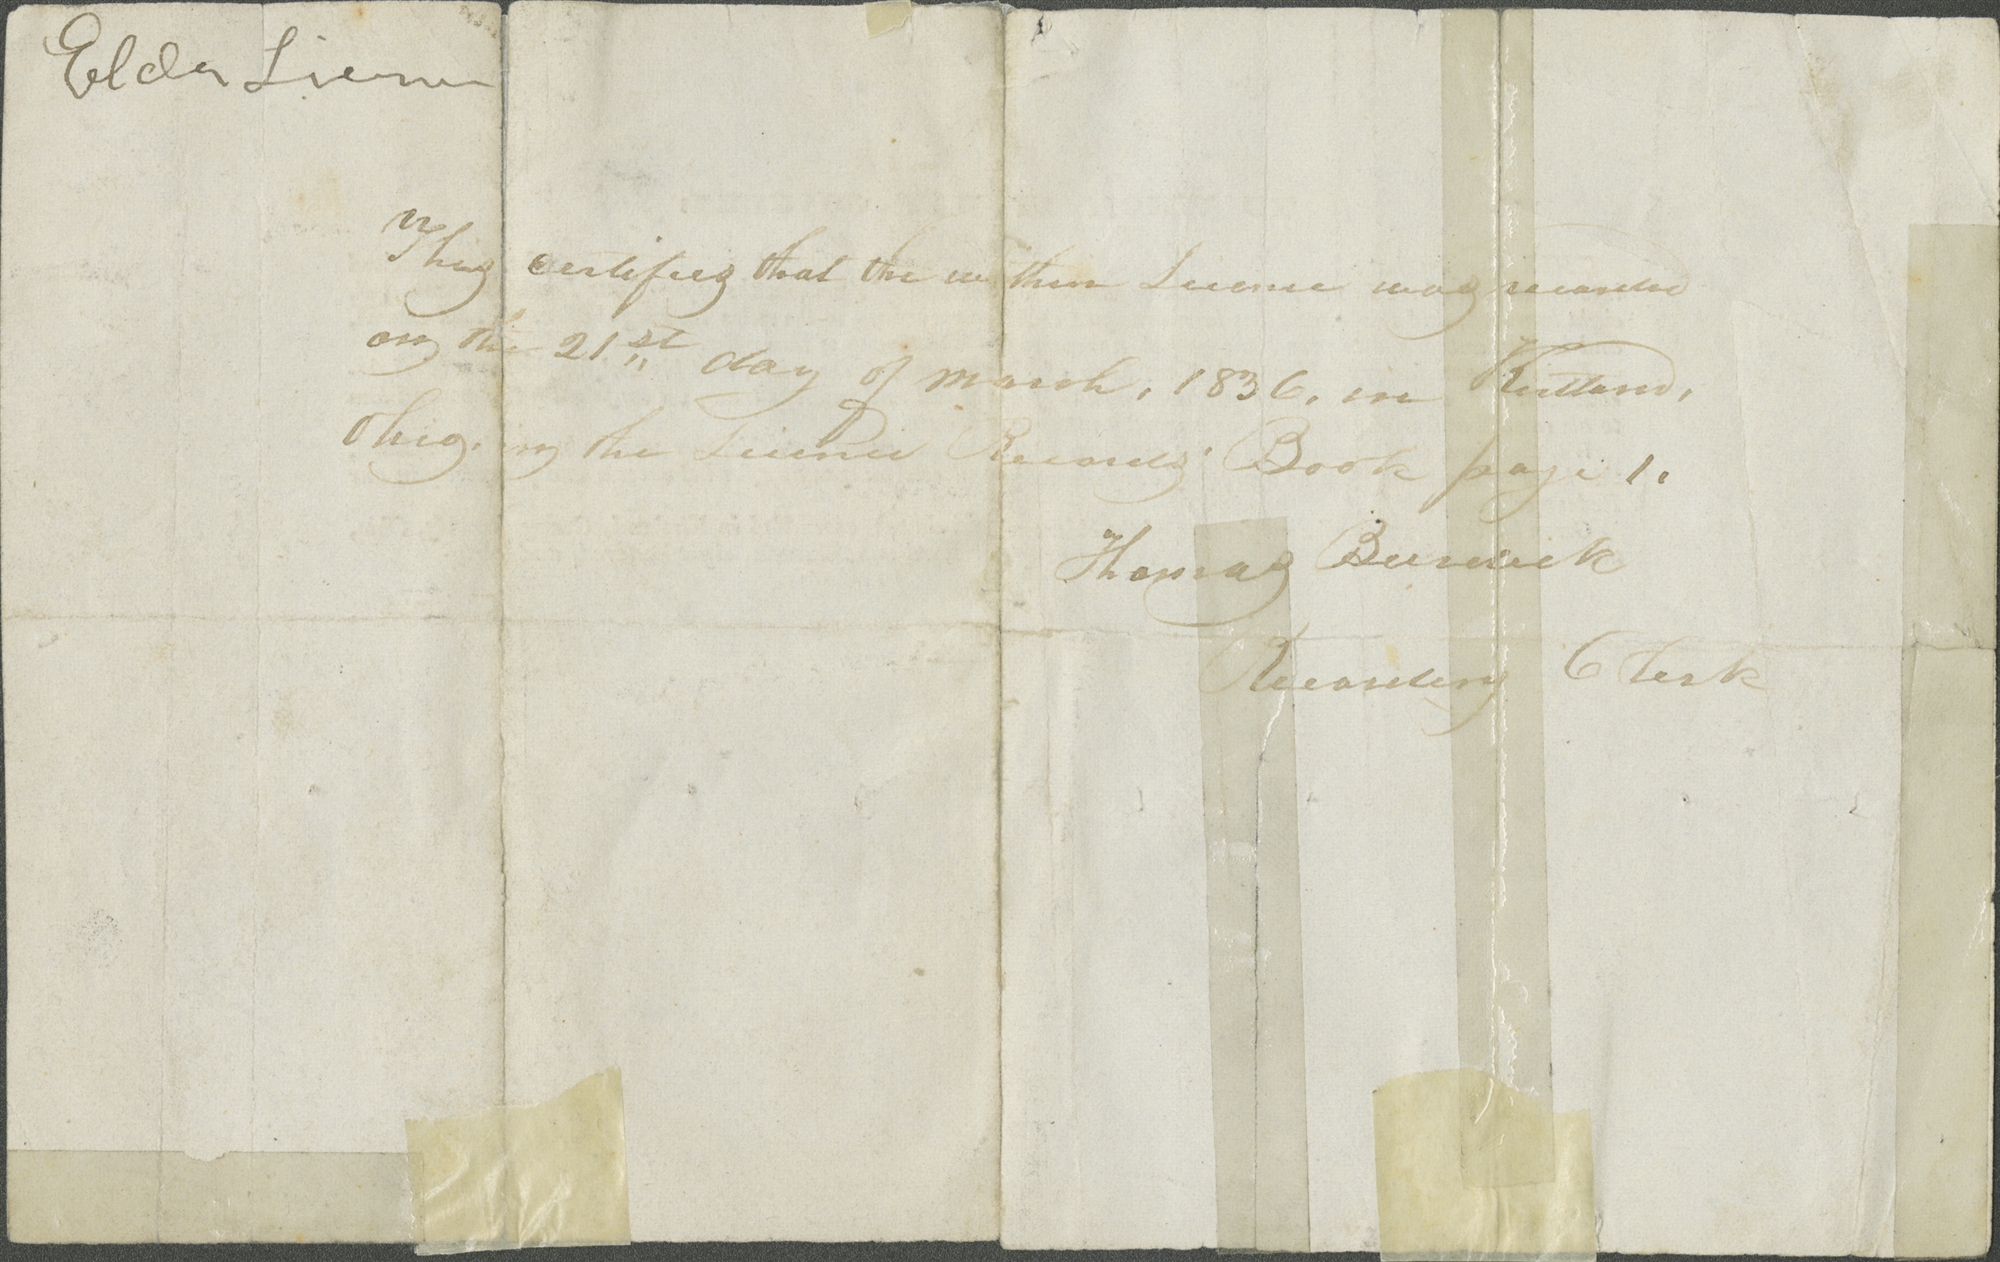 Elder License
This certifies that the within License was recorded
on the 21st day of march, 1836, in Kirtland,
Ohio, in the License Records Book page 1.
Thomas Burdick
Recording Clerk